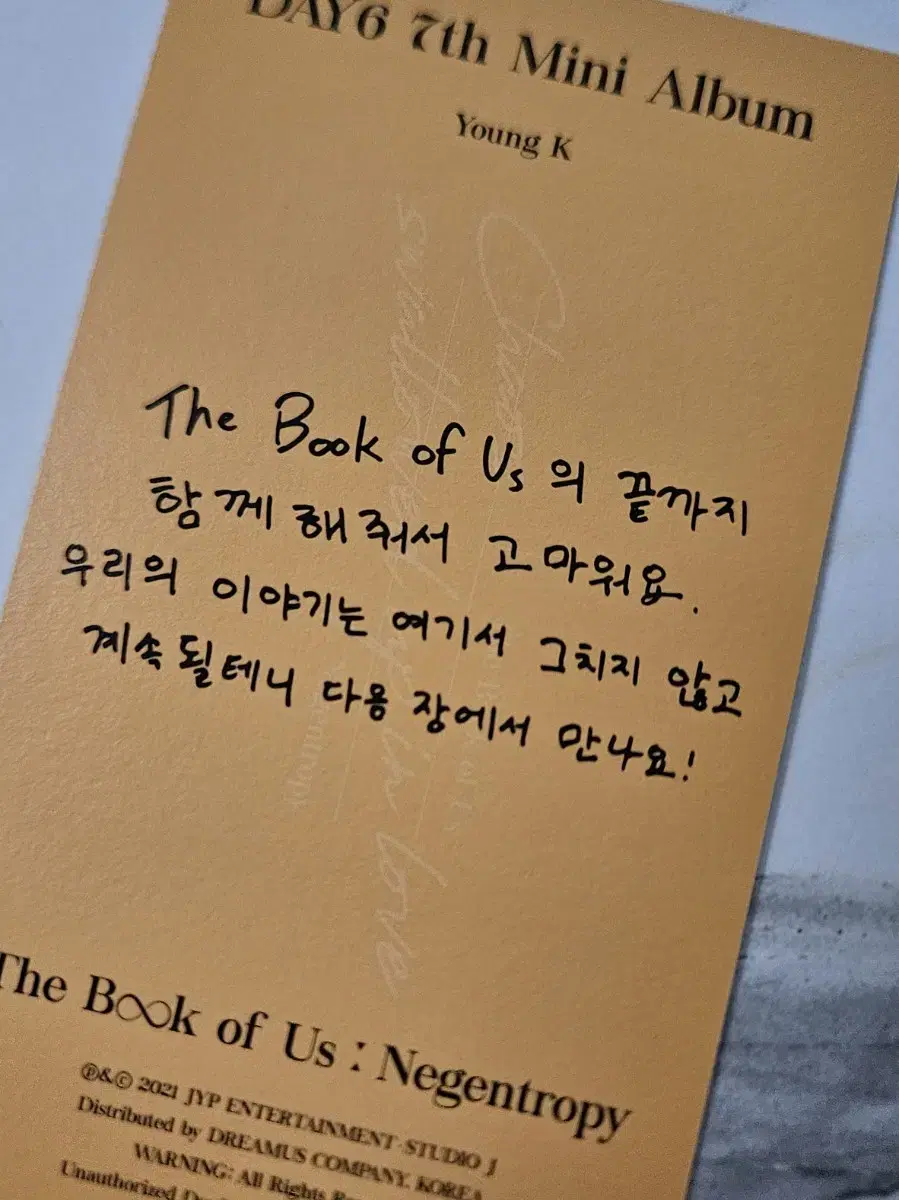 DAY6 7th Mini Album
Young K
The Book of Us 의 끝까지
함께 해줘서 고마워요.
우리의 이야기는 여기서 그치지 않고
계속 될테니 다음 장에서 만나요!
The Book of Us : Negentropy
℗&© 2021 JYP ENTERTAINMENT·STUDIO J
Distributed by DREAMUS COMPANY, KOREA
WARNING: All Rights
Unauthorized